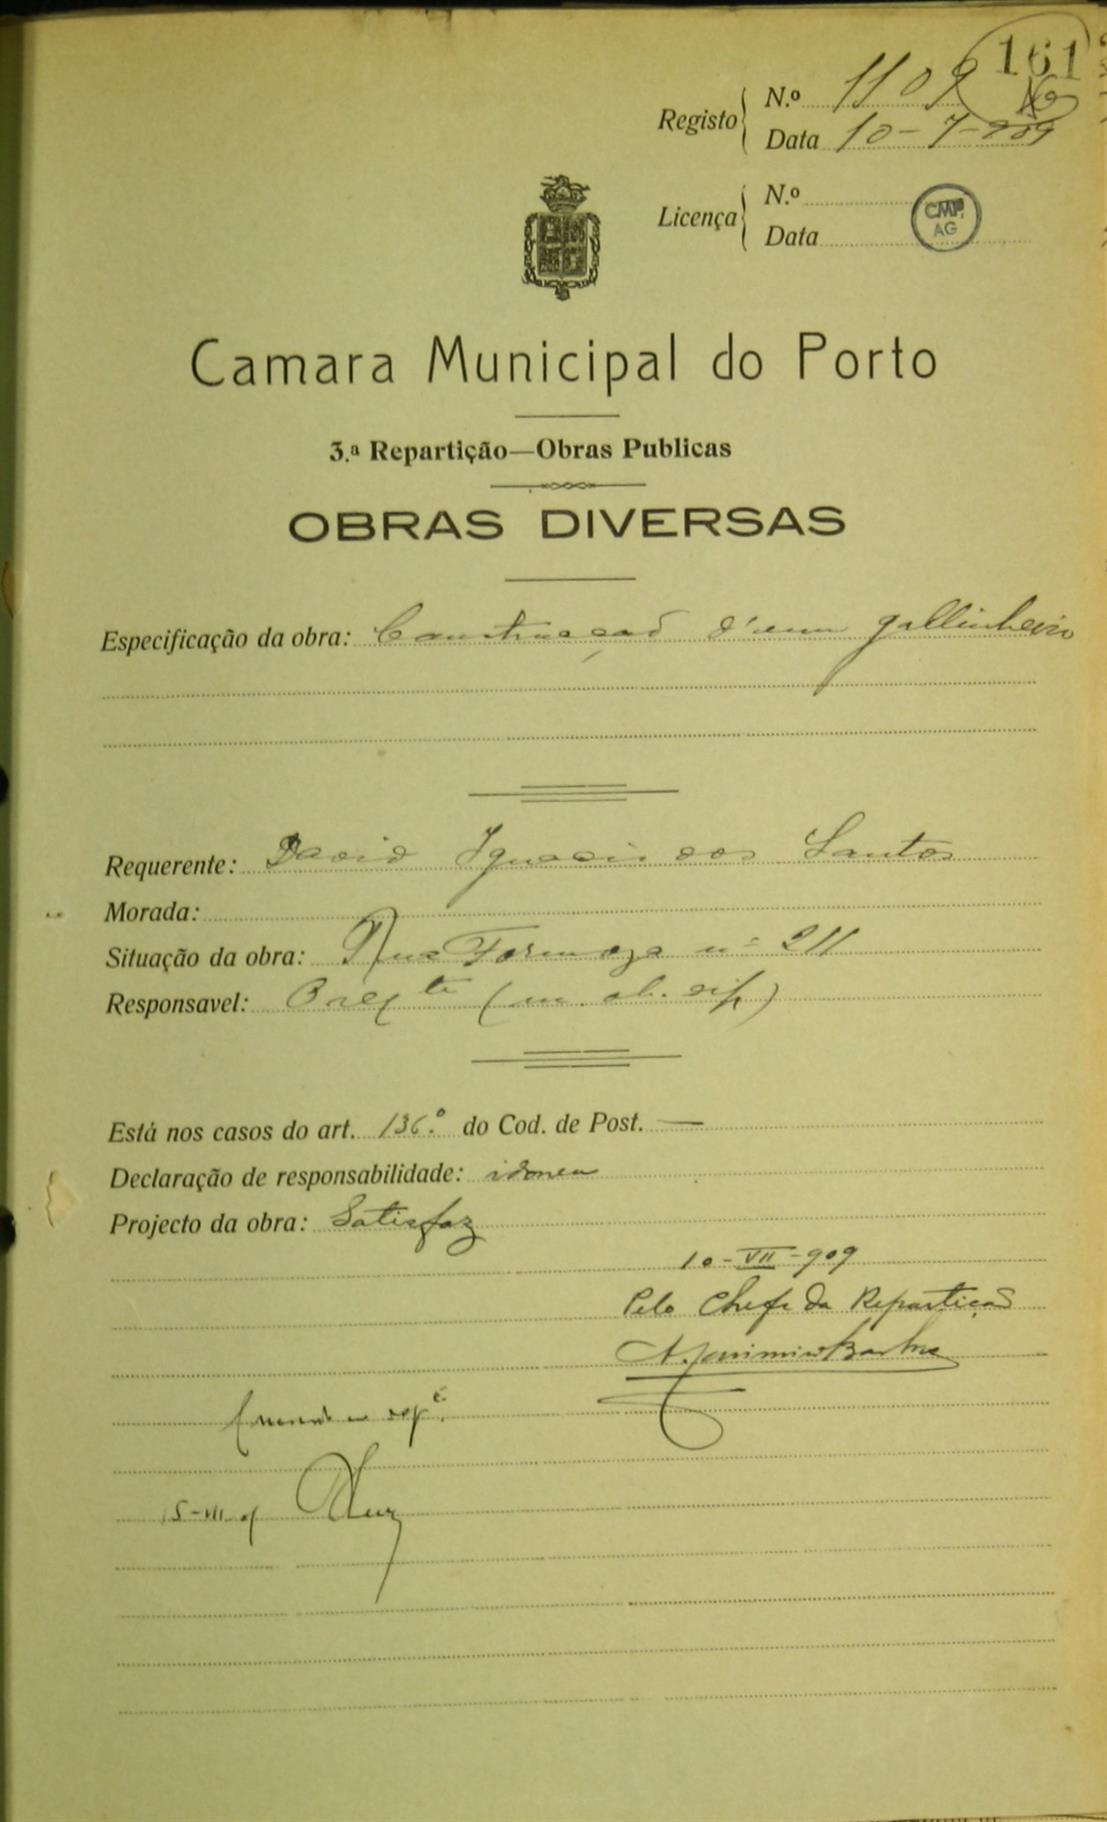 161
Registo N.º 1109
Data 10-7-909
Licença N.º
Data
CMP.
AG
Camara Municipal do Porto
3.ª Repartição—Obras Publicas
OBRAS DIVERSAS
Especificação da obra: Construcção d'um gallinheiro
Requerente: David Ignacio dos Santos
Morada:
Situação da obra: Rua Formoza nº 211
Responsavel: O reqte (m. ob. sip)
Está nos casos do art. 136.º do Cod. de Post. —
Declaração de responsabilidade: idonea
Projecto da obra: Satisfaz
10-VII-909
Pelo Chefe da Repartição